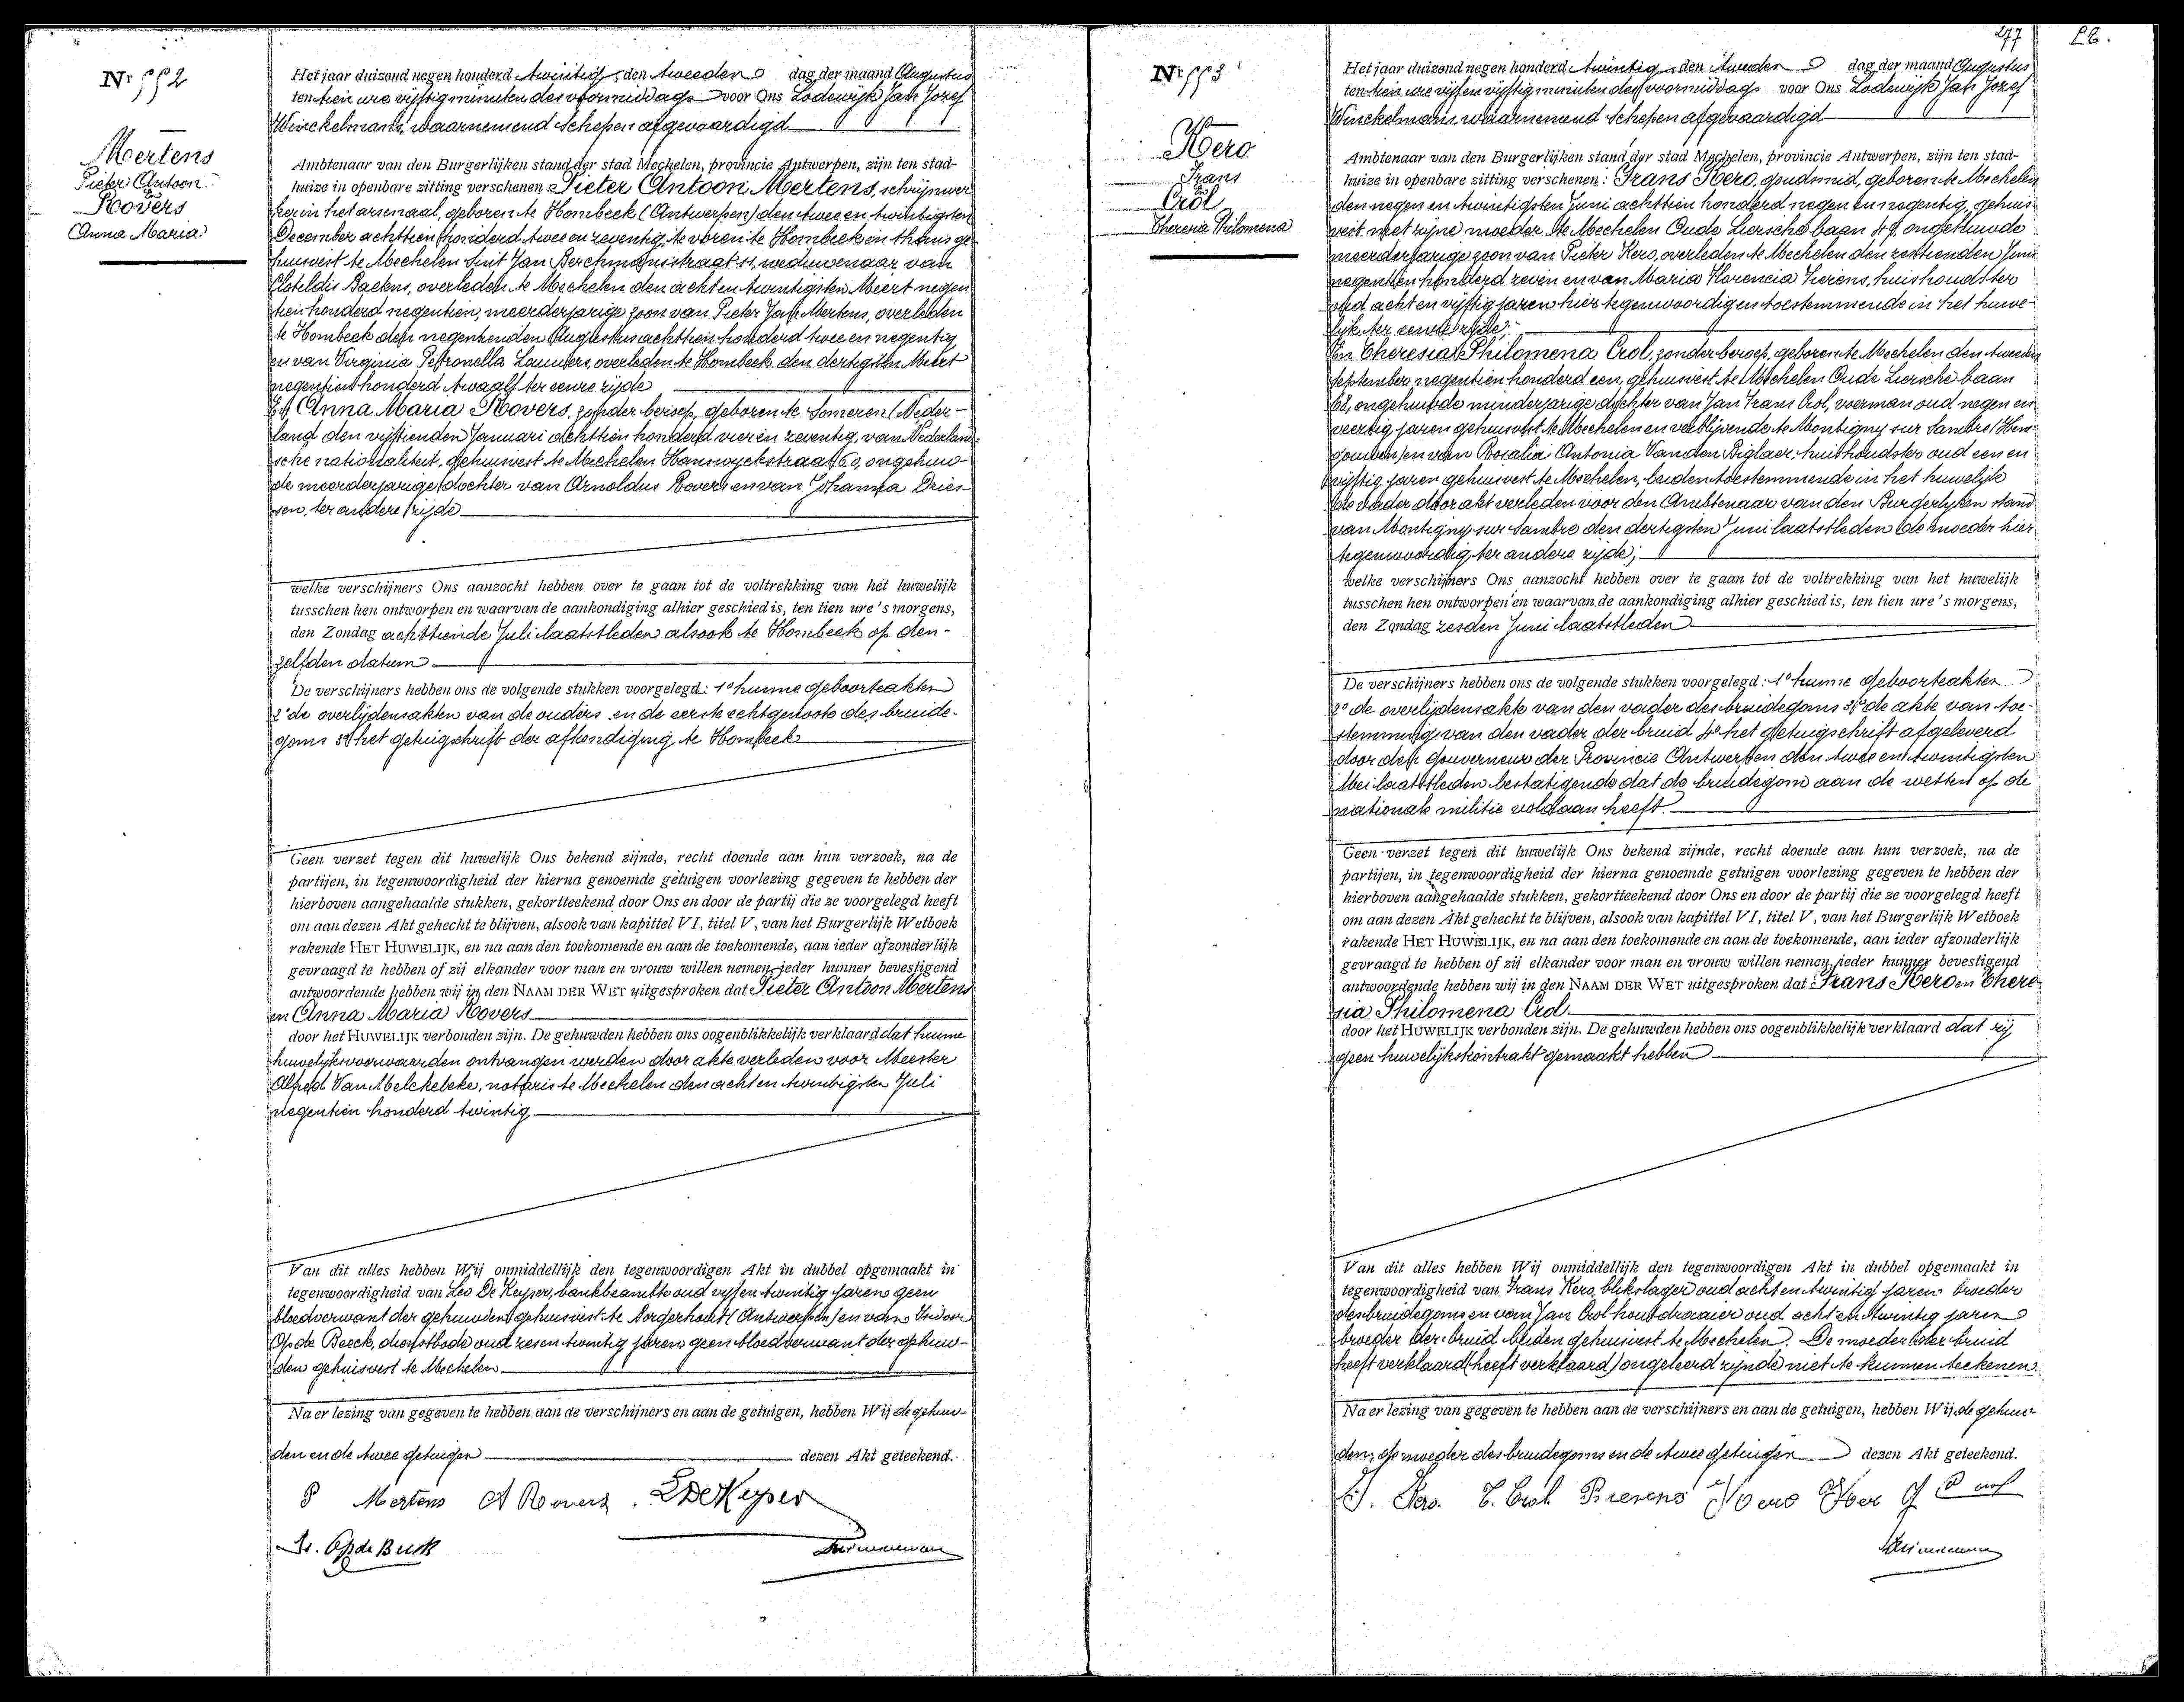 Nr 552
Mertens
Pieter Antoon
&
Rovers
Anna Maria
Het jaar duizend negen honderd twintig, den tweeden dag der maand Augustus
ten tien ure vijftig minuten des voormiddags voor Ons Lodewijk Jan Jozef
Winckelmans, waarnemend Schepen afgevaardigd
Ambtenaar van den Burgerlijken stand der stad Mechelen, provincie Antwerpen, zijn ten stad-
huize in openbare zitting verschenen: Pieter Antoon Mertens, schrijnwer
ker in het arsenaal, geboren te Hombeek (Antwerpen) den twee en twintigsten
December achttien honderd twee en zeventig, te voren te Hombeek en thans ge
huisvest te Mechelen Sint Jan Berchmansstraat 11, weduwenaar van
Cloteldis Baekens, overleden te Mechelen den acht en twintigsten Meert negen
tien honderd negentien, meerderjarige zoon van Pieter Jan Mertens, overleden
te Hombeek den negentienden Augustus achttien honderd twee en negentig
en van Virginia Petronella Lauwers, overleden te Hombeek den dertigsten Meert
negentien honderd twaalf ter eenre zijde
En Anna Maria Rovers, zonder beroep, geboren te Someren (Neder-
land den vijftienden Januari achttien honderd vier en zeventig, van Nederland-
sche nationaliteit, gehuisvest te Mechelen Hanswyckstraat 60, ongehuw-
de meerderjarige dochter van Arnoldus Rovers en van Johanna Dries-
sen, ter andere zijde
welke verschijners Ons aanzocht hebben over te gaan tot de voltrekking van het huwelijk
tusschen hen ontworpen en waarvan de aankondiging alhier geschied is, ten tien ure 's morgens,
den Zondag achttiende Juli laatstleden alsook te Hombeek op den-
zelfden datum
De verschijners hebben ons de volgende stukken voorgelegd: 1° hunne geboorteakten
2° de overlijdensakten van de ouders en de eerste echtgenoote des bruide-
goms 3° het getuigschrift der afkondiging te Hombeek
Geen verzet tegen dit huwelijk Ons bekend zijnde, recht doende aan hun verzoek, na de
partijen, in tegenwoordigheid der hierna genoemde getuigen voorlezing gegeven te hebben der
hierboven aangehaalde stukken, gekortteekend door Ons en door de partij die ze voorgelegd heeft
om aan dezen Akt gehecht te blijven, alsook van kapittel VI, titel V, van het Burgerlijk Wetboek
rakende HET HUWELIJK, en na aan den toekomende en aan de toekomende, aan ieder afzonderlijk
gevraagd te hebben of zij elkander voor man en vrouw willen nemen, ieder hunner bevestigend
antwoordende hebben wij in den NAAM DER WET uitgesproken dat Pieter Antoon Mertens
en Anna Maria Rovers
door het HUWELIJK verbonden zijn. De gehuwden hebben ons oogenblikkelijk verklaard dat hunne
huwelijksvoorwaarden ontvangen werden door akte verleden voor Meester
Alfred Van Melckebeke, notaris te Mechelen den acht en twintigsten Juli
negentien honderd twintig
Van dit alles hebben Wij onmiddellijk den tegenwoordigen Akt in dubbel opgemaakt in
tegenwoordigheid van Leo De Keyser, bankbeambte oud vijf en twintig jaren geen
bloedverwant der gehuwden gehuisvest te Borgerhout (Antwerpen) en van Isidoor
Op de Beeck, dienstbode oud zes en twintig jaren geen bloedverwant der gehuw-
den gehuisvest te Mechelen
Na er lezing van gegeven te hebben aan de verschijners en aan de getuigen, hebben Wij de gehuw-
den en de twee getuigen dezen Akt geteekend.
P Mertens A Rovers L De Keyser
Is. Op de Beeck
277
Nr 553
Kero
Frans
&
Crol
Theresia Philomena
Het jaar duizend negen honderd twintig, den tweeden dag der maand Augustus
ten tien ure vijf en vijftig minuten des voormiddags voor Ons Lodewijk Jan Jozef
Winckelmans, waarnemend Schepen afgevaardigd
Ambtenaar van den Burgerlijken stand der stad Mechelen, provincie Antwerpen, zijn ten stad-
huize in openbare zitting verschenen: Frans Kero, goudsmid, geboren te Mechelen
den negen en twintigsten Juni achttien honderd negen en negentig, gehuis-
vest met zijne moeder te Mechelen Oude Liersche baan 49, ongehuwde
meerderjarige zoon van Pieter Kero, overleden te Mechelen den zestienden Juni
negentien honderd zeven en van Maria Florencia Fierens, huishoudster
oud acht en vijftig jaren hier tegenwoordig en toestemmende in het huwe-
lijk ter eenre zijde;
En Theresia Philomena Crol, zonder beroep, geboren te Mechelen den tweeden
September negentien honderd een, gehuisvest te Mechelen Oude Liersche baan
68, ongehuwde minderjarige dochter van Jan Frans Crol, voerman oud negen en
veertig jaren gehuisvest te Mechelen en verblijvende te Montigny sur Sambre (Hene-
gouwen) en van Rosalia Antonia Vanden Biglaer, huishoudster oud een en
vijftig jaren gehuisvest te Mechelen, beiden toestemmende in het huwelijk
de vader door akt verleden voor den Ambtenaar van den Burgerlyken stand
van Montigny sur Sambre den dertigsten Juni laatstleden de moeder hier
tegenwoordig, ter andere zijde;
welke verschijners Ons aanzocht hebben over te gaan tot de voltrekking van het huwelijk
tusschen hen ontworpen en waarvan de aankondiging alhier geschied is, ten tien ure 's morgens,
den Zondag zesden Juni laatstleden
De verschijners hebben ons de volgende stukken voorgelegd: 1° hunne geboorteakten
2° de overlijdensakte van den vader des bruidegoms 3° de akte van toe-
stemming van den vader der bruid 4° het getuigschrift afgeleverd
door den Gouverneur der Provincie Antwerpen den twee en twintigsten
Mei laatstleden bestatigende dat de bruidegom aan de wetten op de
nationale militie voldaan heeft.
Geen verzet tegen dit huwelijk Ons bekend zijnde, recht doende aan hun verzoek, na de
partijen, in tegenwoordigheid der hierna genoemde getuigen voorlezing gegeven te hebben der
hierboven aangehaalde stukken, gekortteekend door Ons en door de partij die ze voorgelegd heeft
om aan dezen Akt gehecht te blijven, alsook van kapittel VI, titel V, van het Burgerlijk Wetboek
rakende HET HUWELIJK, en na aan den toekomende en aan de toekomende, aan ieder afzonderlijk
gevraagd te hebben of zij elkander voor man en vrouw willen nemen, ieder hunner bevestigend
antwoordende hebben wij in den NAAM DER WET uitgesproken dat Frans Kero en There
sia Philomena Crol
door het HUWELIJK verbonden zijn. De gehuwden hebben ons oogenblikkelijk verklaard dat zij
geen huwelijkskontrakt gemaakt hebben
Van dit alles hebben Wij onmiddellijk den tegenwoordigen Akt in dubbel opgemaakt in
tegenwoordigheid van Frans Kero, blikslager oud acht en twintig jaren broeder
des bruidegoms en van Jan Crol houtdraaier oud acht en twintig jaren
broeder der bruid beiden gehuisvest te Mechelen. De moeder der bruid
heeft verklaard (heeft verklaard) ongeleerd zijnde niet te kunnen teekenen
Na er lezing van gegeven te hebben aan de verschijners en aan de getuigen, hebben Wij de gehuw-
den, de moeder des bruidegoms en de twee getuigen dezen Akt geteekend.
F. Kero. T. Crol Fierens Kero